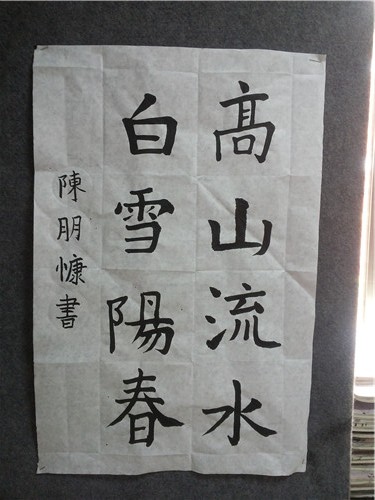 髙山流水
白雪陽春
陳朋慷書